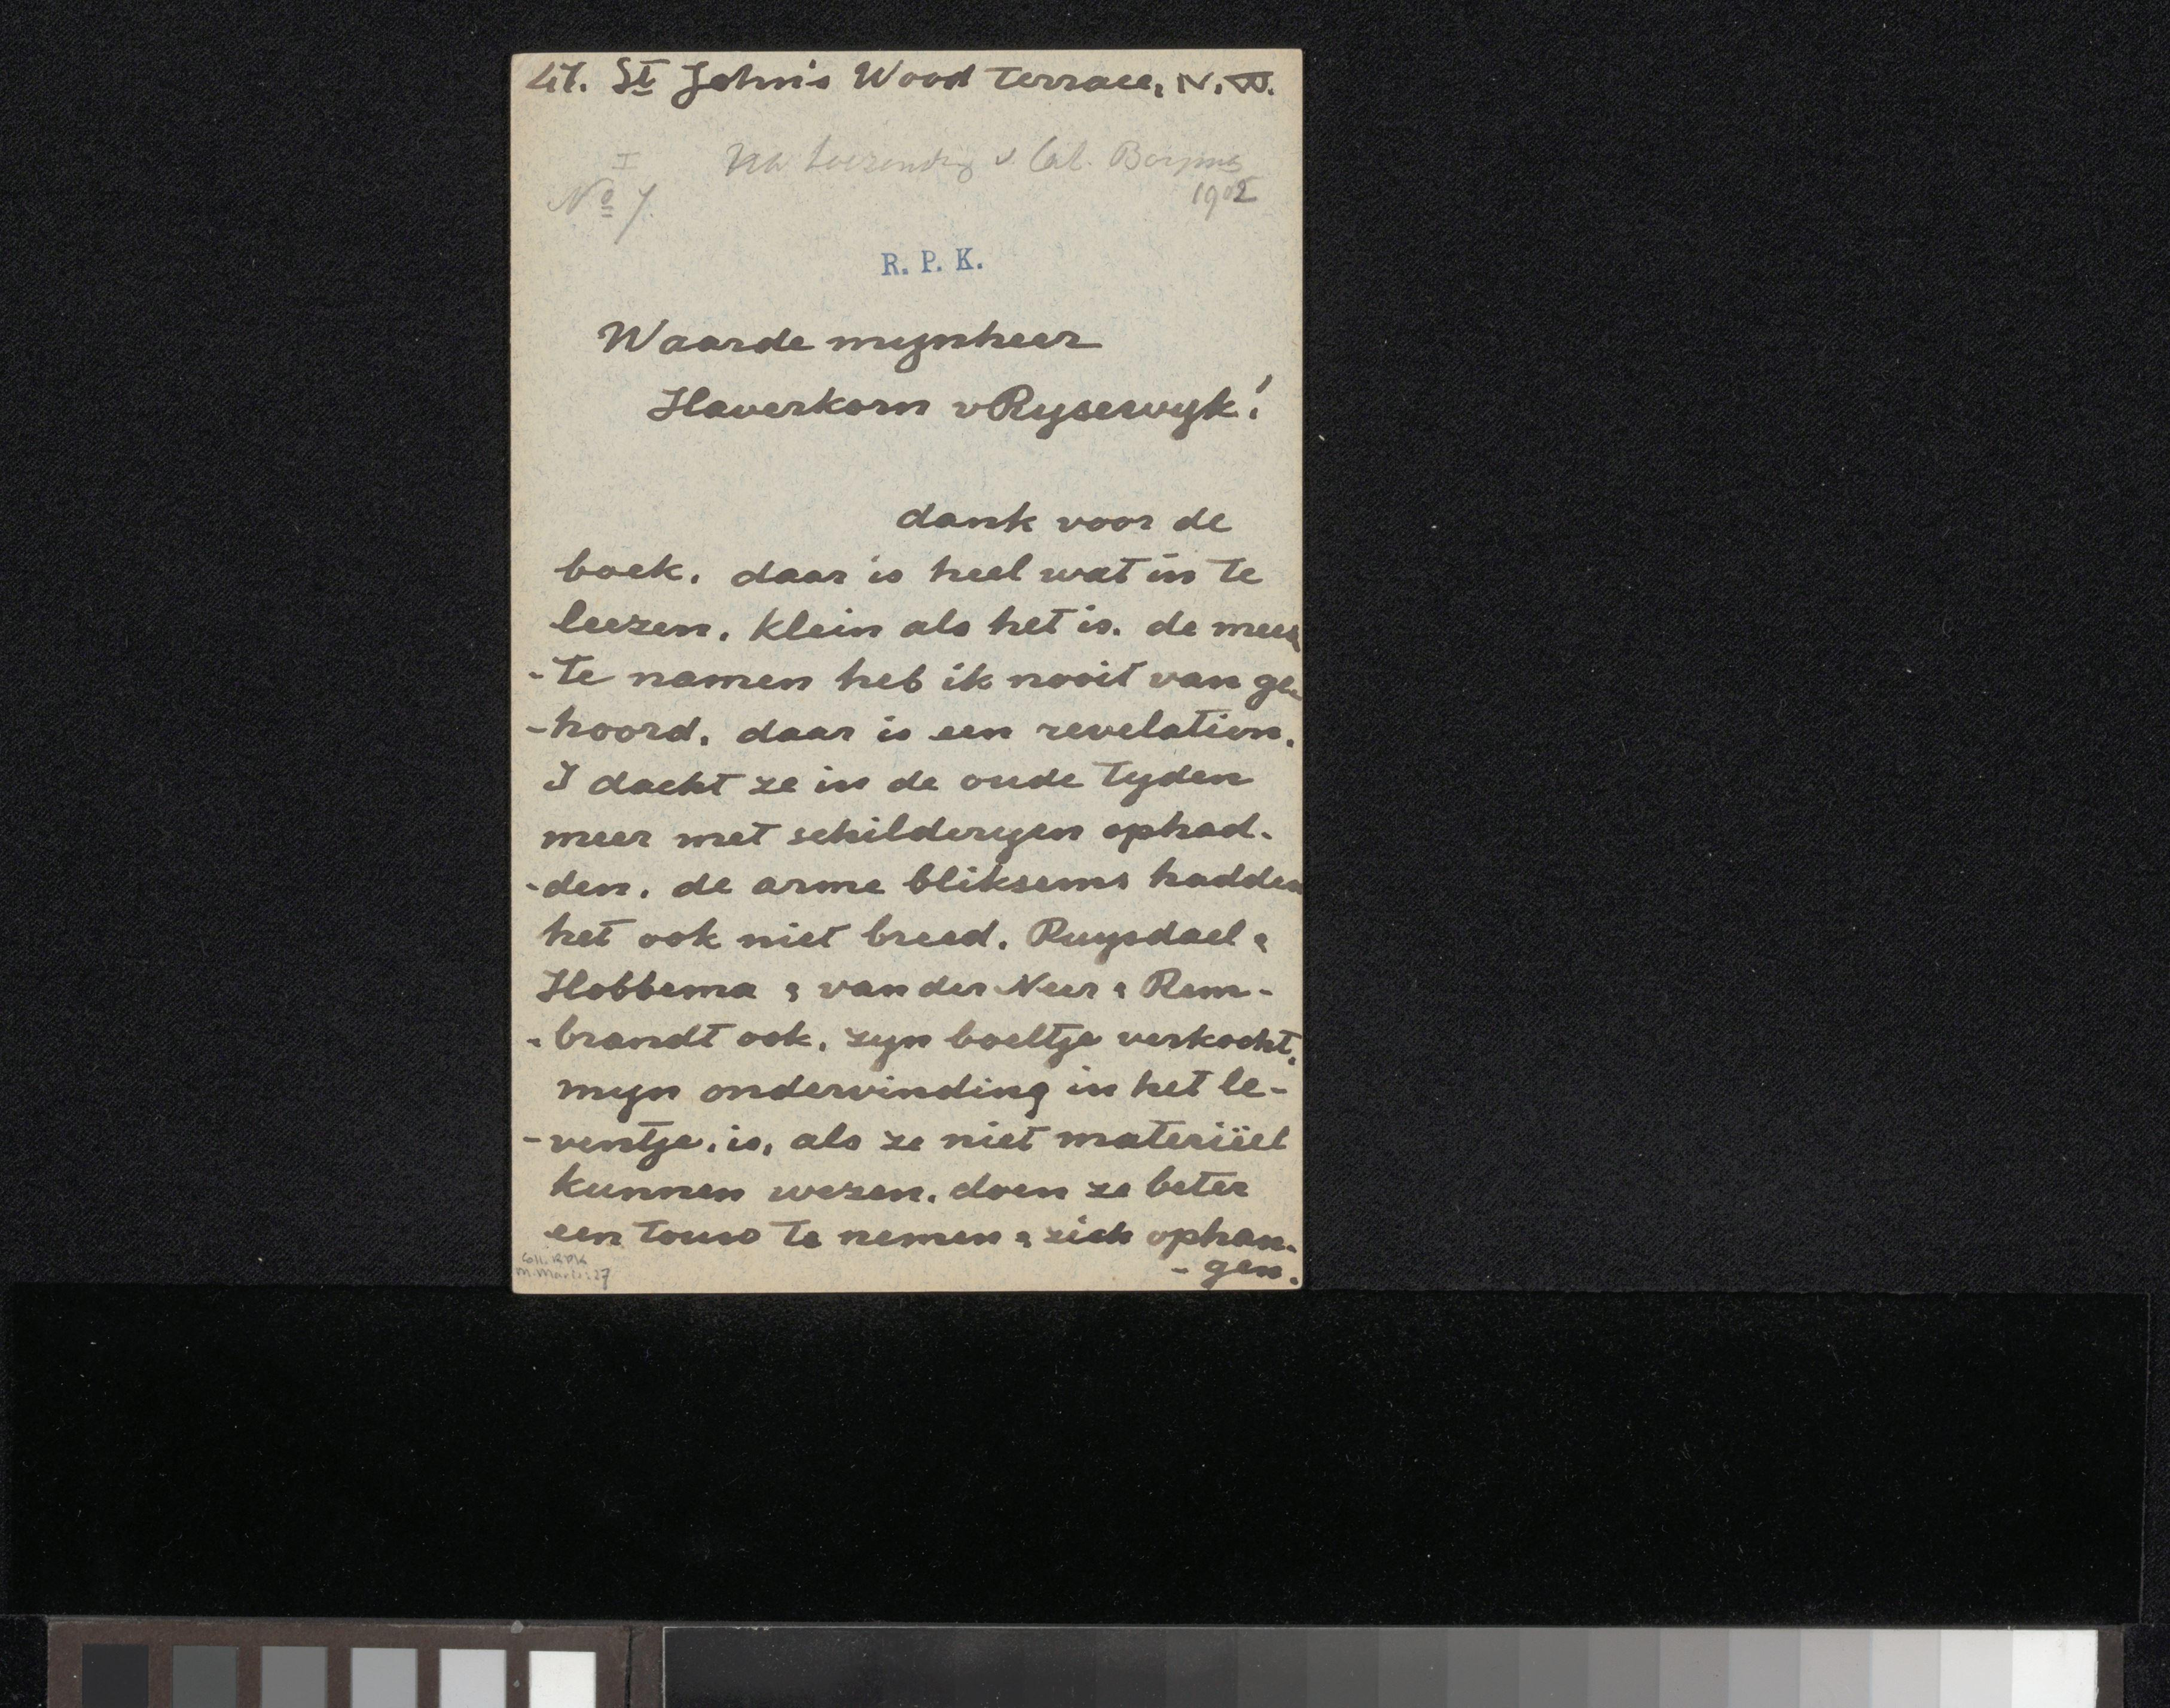 47. St John's Wood Terrace, N.W.
I Na toezending v. Cat. Boymans
No 7. 1902
R. P. K.
Waarde mynheer
Haverkorn v Rysewyk!
dank voor de
boek. daar is heel wat in te
leezen. klein als het is. de mees
-te namen heb ik nooit van ge-
-hoord. daar is een revelation.
I dacht ze in de oude tyden
meer met schilderyen ophad-
-den. de arme bliksems hadden
het ook niet breed. Ruysdael &
Hobbema & van der Neer & Rem-
-brandt ook. zyn boeltje verkocht.
myn ondervinding in het le-
-ventje. is, als ze niet materiëel
kunnen wezen. doen ze beter
een touw te nemen & zich ophan-
-gen.
Coll. RPK
M. Maris: 27